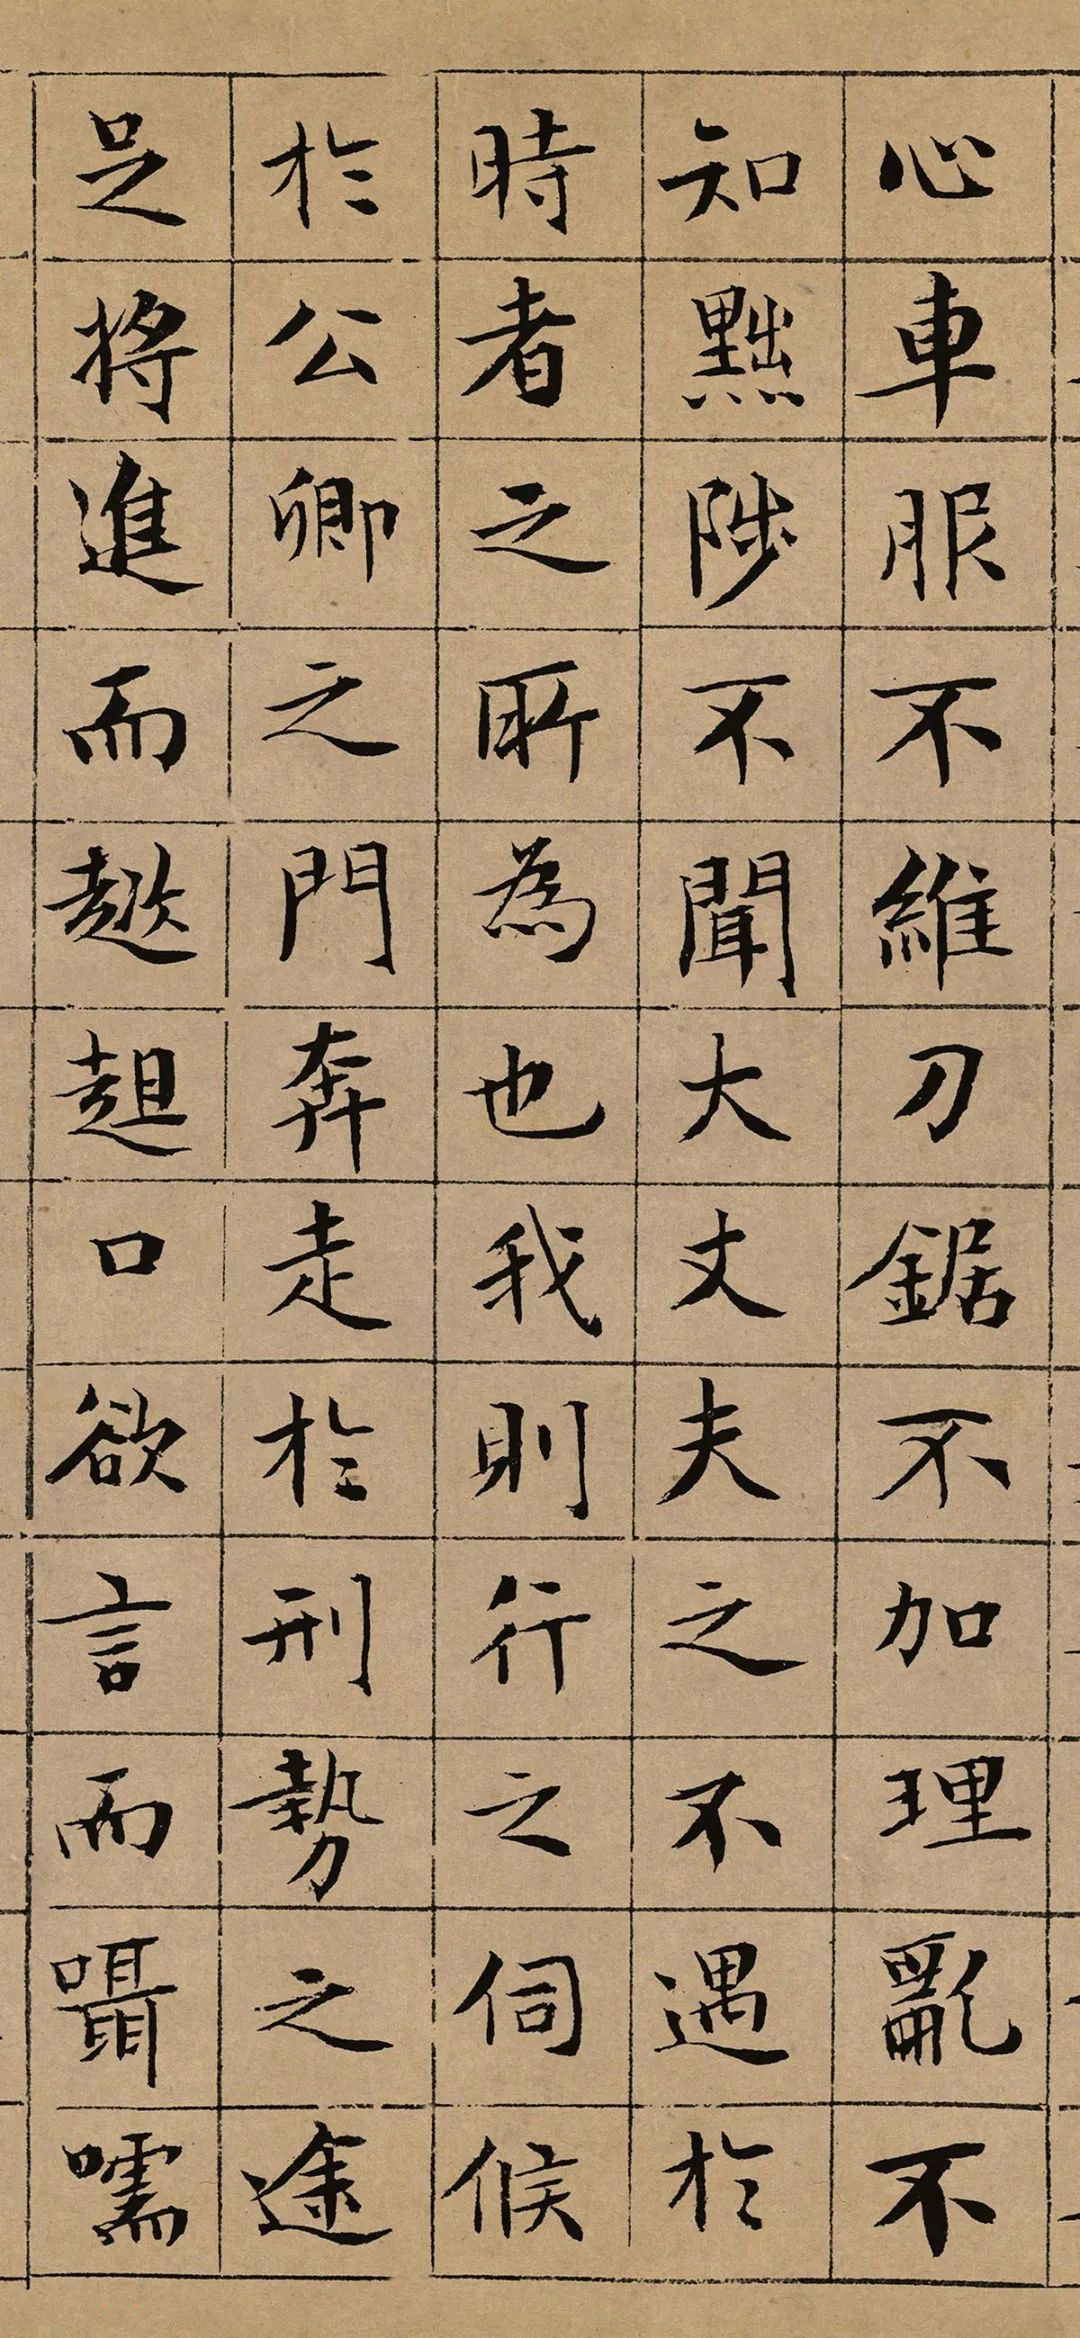 心車服不維刀鋸不加理亂不
知黜陟不聞大丈夫之不遇於
時者之所為也我則行之伺候
於公卿之門奔走於刑勢之途
足將進而趑趄口欲言而囁嚅